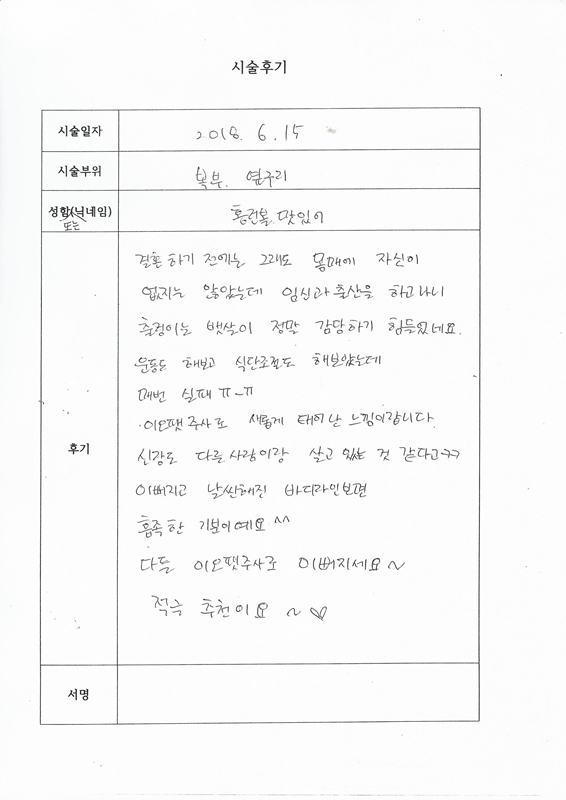 시술후기
시술일자 2018. 6. 15
시술부위 복부. 옆구리
성함(닉네임) 또는 홍런볼 맛있어
후기
결혼 하기 전에는 그래도 몸매에 자신이
없지는 않았는데 임신과 출산을 하고나니
출렁이는 뱃살이 정말 감당하기 힘들었네요.
운동도 해보고 식단조절도 해보았는데
매번 실패 ㅠ_ㅠ
이오팻주사로 새롭게 태어난 느낌이랍니다.
신랑도 다른 사람이랑 살고 있는 것 같다고ㅋㅋ
이뻐지고 날씬해진 바디라인보면
흡족한 기분이예요 ^^
다들 이오팻주사로 이뻐지세요~
적극 추천이요 ~ ♡
서명